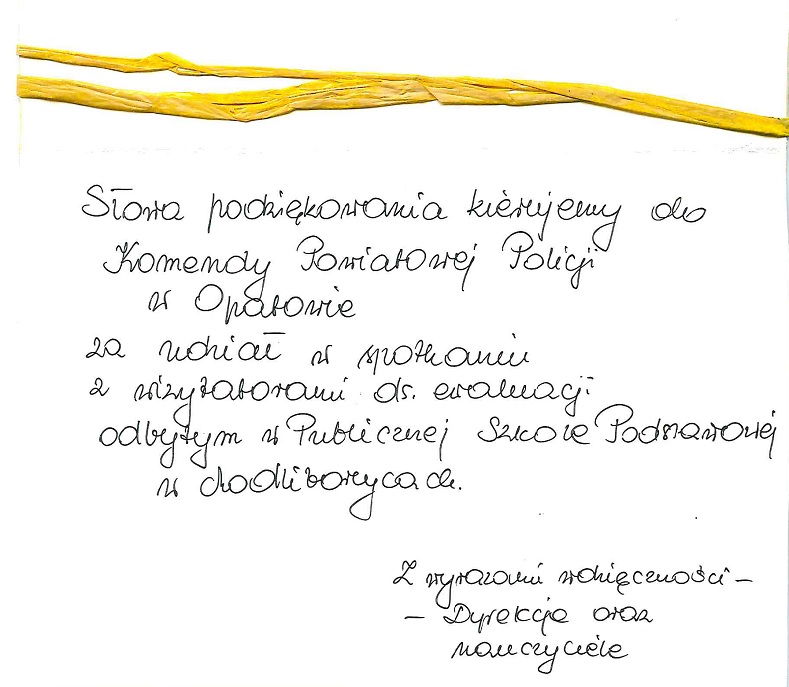 Słowa podziękowania kierujemy do
Komendy Powiatowej Policji
w Opatowie
za udział w spotkaniu
z wizytatorami ds. ewaluacji
odbytym w Publicznej Szkole Podstawowej
w
Z wyrazami wdzięczności –
– Dyrekcja oraz
nauczyciele